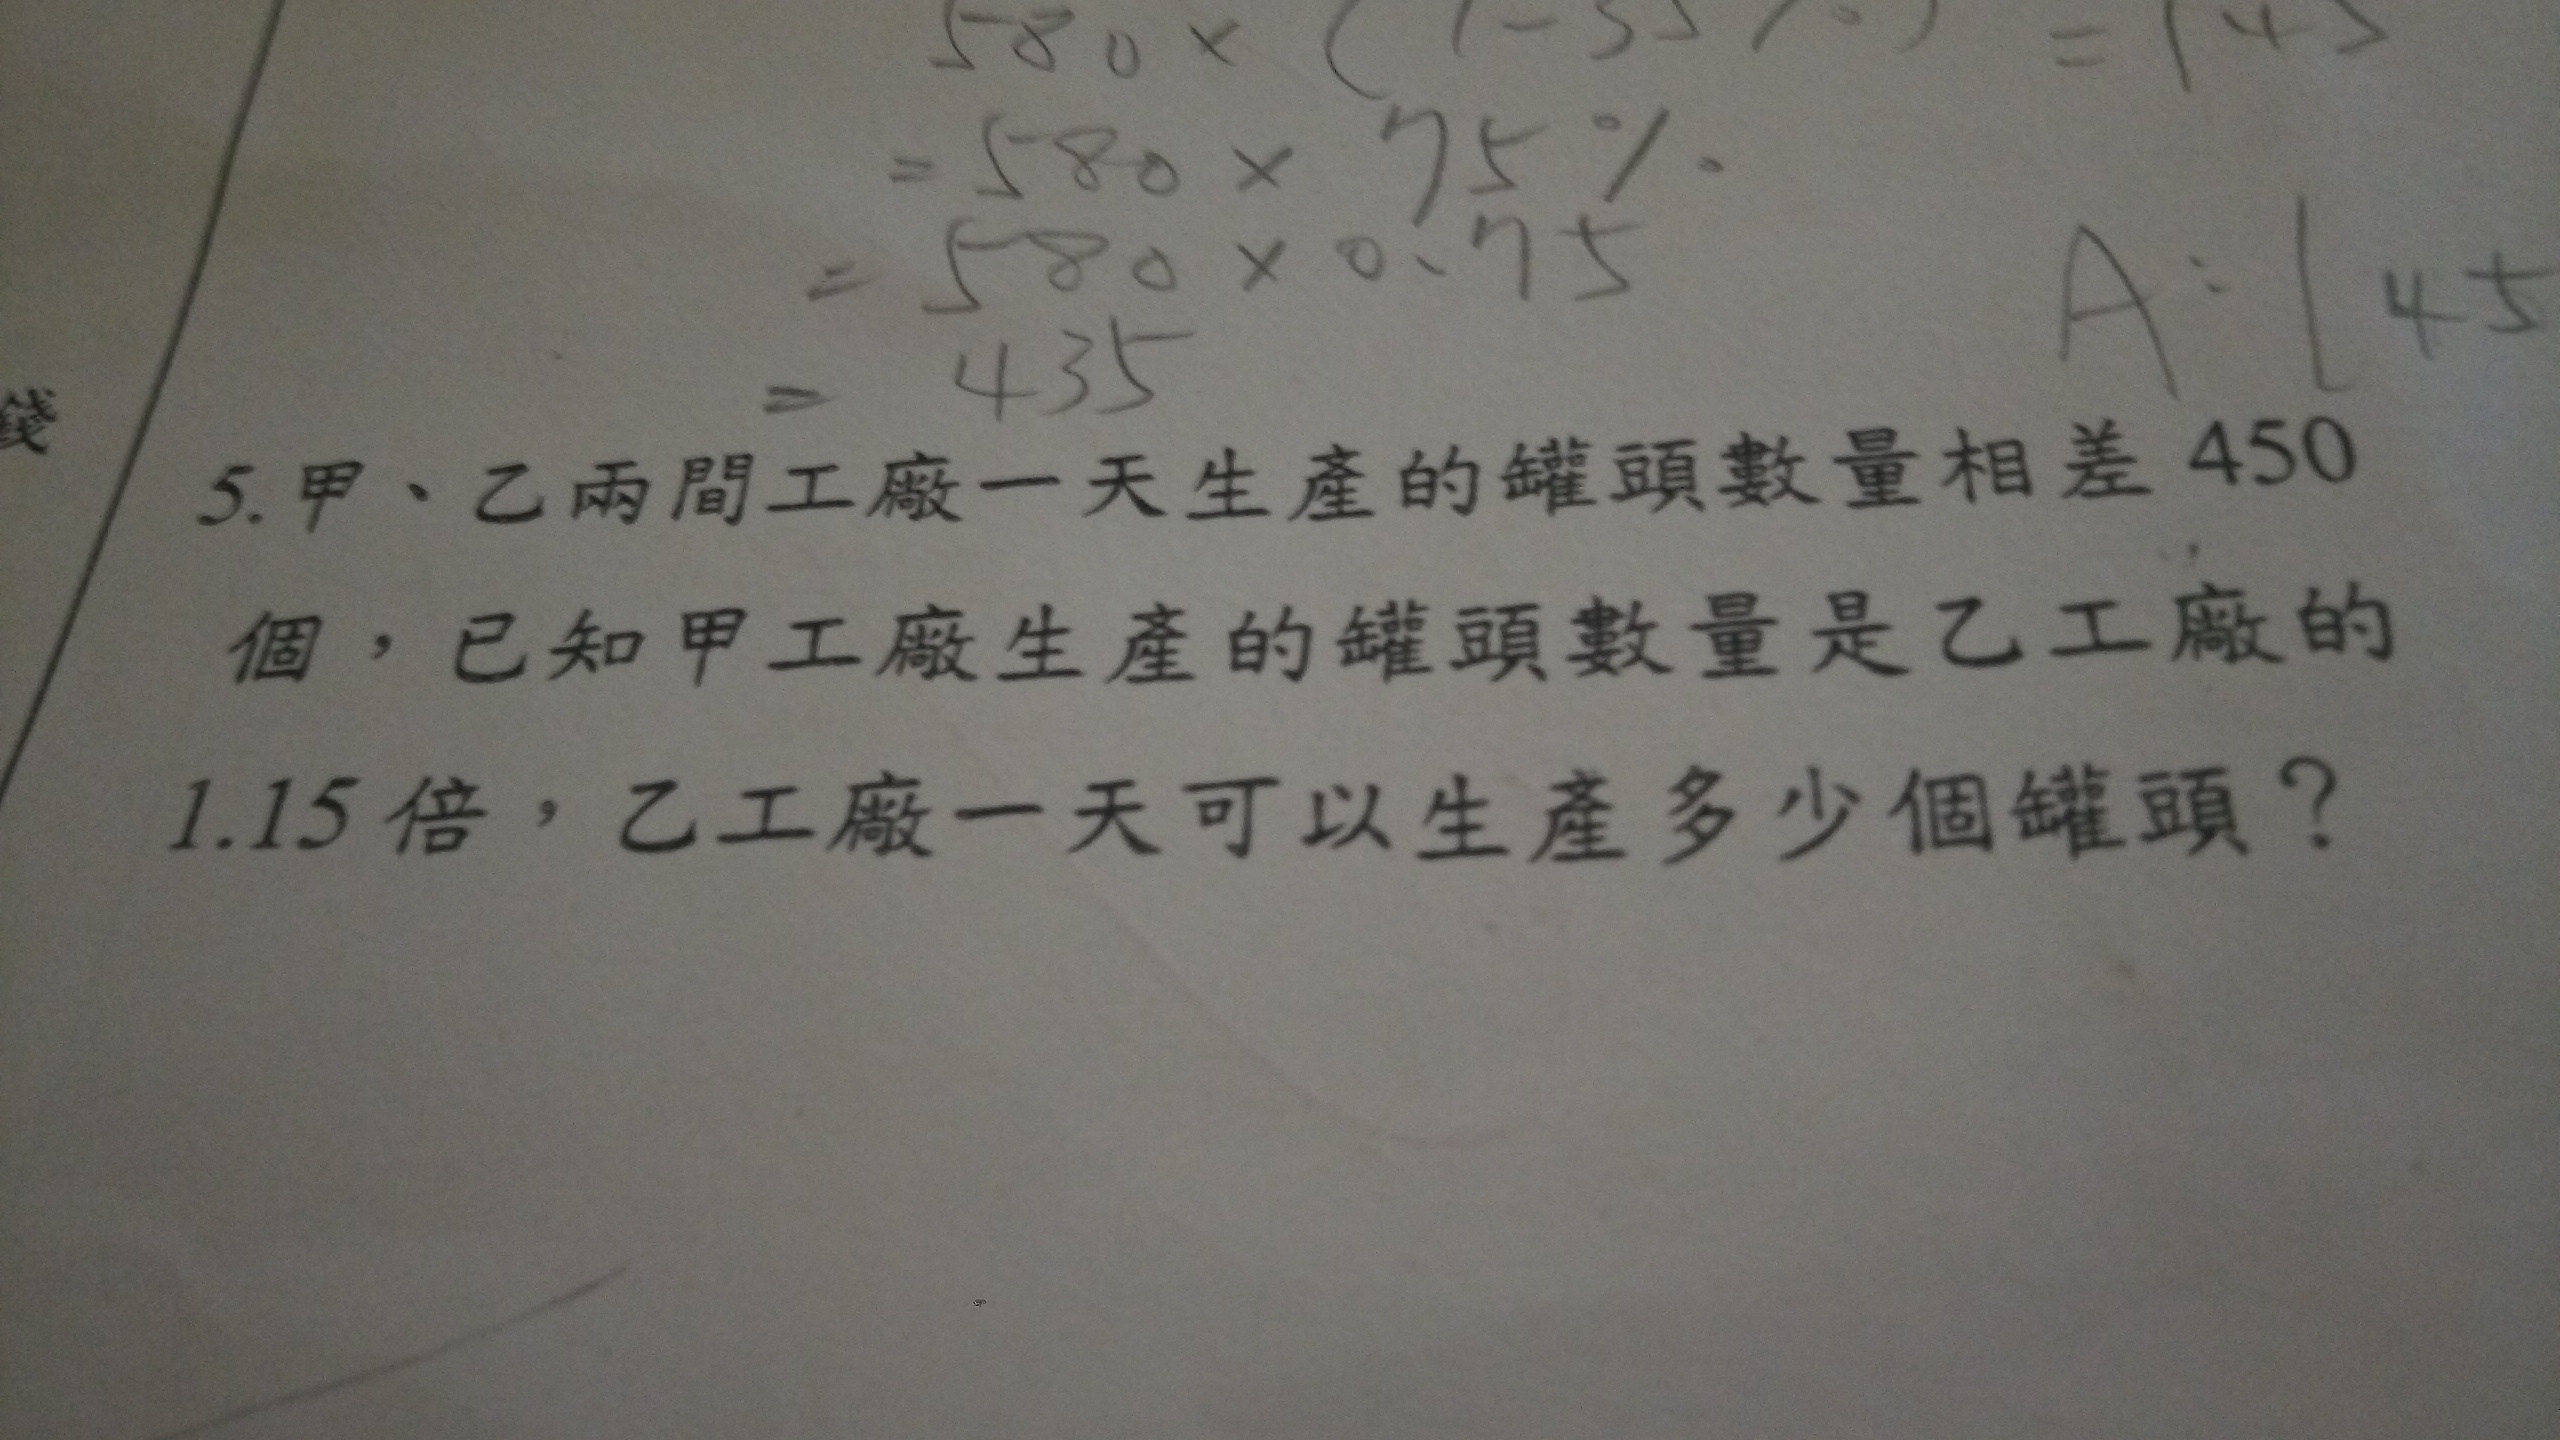 580 × (1-
= 580 × 75%
= 580 × 0.75
A: 145
= 435
錢
5. 甲、乙兩間工廠一天生產的罐頭數量相差 450
個，已知甲工廠生產的罐頭數量是乙工廠的
1.15 倍，乙工廠一天可以生產多少個罐頭？